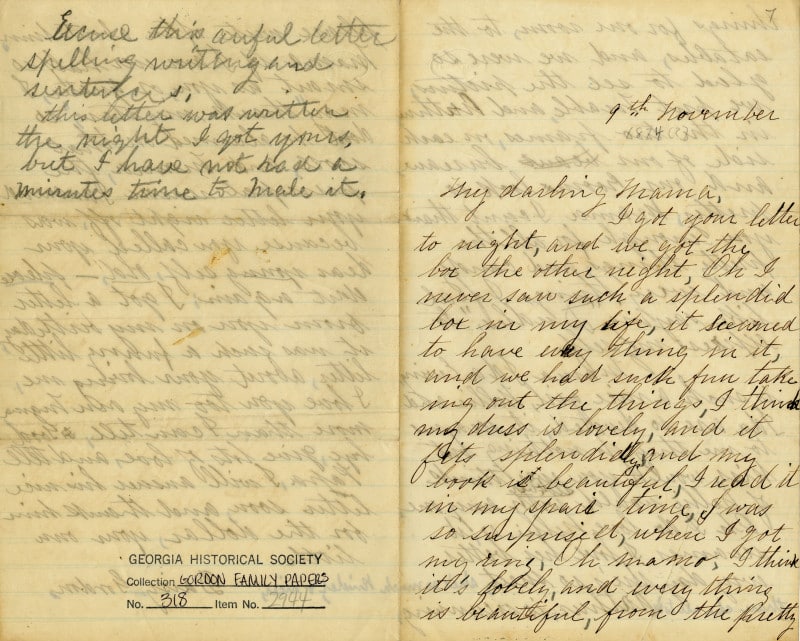 Excuse this awful letter
spelling writing and
sentences,
this letter was written
the night I got yours,
but I have not had a
minutes time to male it.
GEORGIA HISTORICAL SOCIETY
Collection GORDON FAMILY PAPERS
No. 318 Item No. 2944
7
9th November
My darling Mama,
I got your letter
to night, and we got the
box the other night, Oh I
never saw such a splendid
box in my life, it seemed
to have every thing in it,
and we had such fun take
ing out the things, I think
my dress is lovely, and it
fits splendidly, and my
book is beautiful, I read it
in my spair time, I was
so surprised, when I got
my ring, Oh mama, I think
it's lovely, and everything
is beautiful, from the pretty